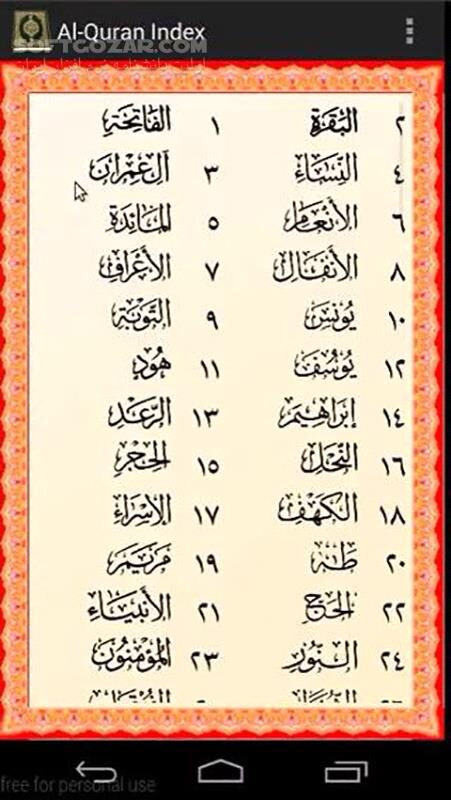 Al-Quran Index
SOFTGOZAR.COM
١ الفَاتِحَةِ ٢ البَقَرَةِ
٣ آلِ عِمْرَانَ ٤ النِّسَاءِ
٥ المَائِدَةِ ٦ الأَنْعَامِ
٧ الأَعْرَافِ ٨ الأَنْفَالِ
٩ التَّوْبَةِ ١٠ يُونُسَ
١١ هُودٍ ١٢ يُوسُفَ
١٣ الرَّعْدِ ١٤ إِبْرَاهِيمَ
١٥ الحِجْرِ ١٦ النَّحْلِ
١٧ الإِسْرَاءِ ١٨ الكَهْفِ
١٩ مَرْيَمَ ٢٠ طه
٢١ الأَنْبِيَاءِ ٢٢ الحَجِّ
٢٣ المُؤْمِنُونَ ٢٤ النُّورِ
free for personal use